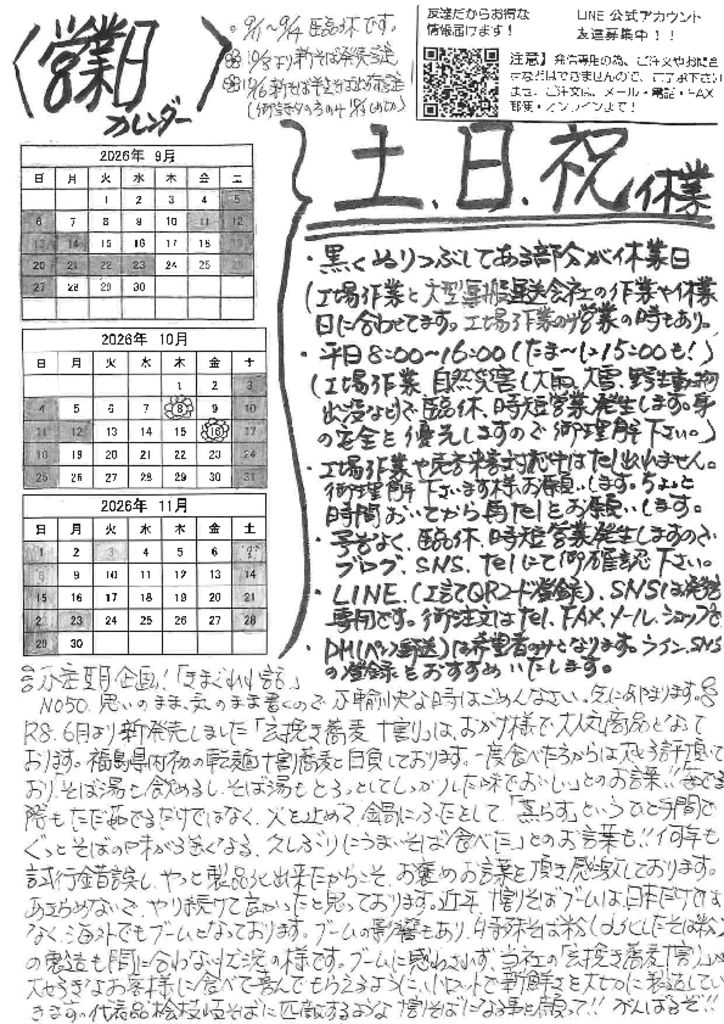 営業日
カレンダー
・9/1〜9/4 臨休です。
10/8より新そば発売予定
10/16新そば半生そば出荷予定
友達だからお得な
情報届けます!
LINE 公式アカウント
友達募集中!!
注意】発信専用の為、ご注文やお問合
せなどはできませんので、ご了承下さい
ませ。ご注文は、メール・電話・FAX
郵便・オンラインまで!
土、日、祝 休業
2026年 9月
日 月 火 水 木 金 土
1 2 3 4 5
6 7 8 9 10 11 12
13 14 15 16 17 18
20 21 22 23 24 25
27 28 29 30
2026年 10月
日 月 火 水 木 金 土
1 2 3
4 5 6 7 8 9 10
11 12 13 14 15 16 17
18 19 20 21 22 23 24
25 26 27 28 29 30 31
2026年 11月
日 月 火 水 木 金 土
1 2 3 4 5 6 7
8 9 10 11 12 13 14
15 16 17 18 19 20 21
22 23 24 25 26 27 28
29 30
・黒くぬりつぶしてある部分が休業日
(工場作業と大型運搬運送会社の作業や休業
日に合わせてます。工場作業のみ営業の時もあり。)
・平日8:00〜16:00(たま〜に15:00も!)
(工場作業、自然災害(大雨、大雪、野生動物
出没など)で臨休、時短営業発生します。
の安全を優先しますので御理解下さい。)
・工場作業や来客対応中はtel出れません。
御理解下さいます様お願いします。ちょっと
時間おいてから再telをお願いします。
・予告なく、臨休、時短営業発生しますので
ブログ、SNS、telにて御確認下さい。
・LINE(上記QRコード登録)、SNSは発信
専用です。御注文はtel、FAX、メール、ショップで
・DM(郵送)は希望者のみとなります。ライン、SNS
の登録をおすすめいたします。
企画!「きまぐれ小話」
NO50、思いのまま、気のまま書くので不愉快な時はごめんなさい。先にあやまります。
R8.6月より新発売しました「玄挽き蕎麦 十割」は、おかげ様で大人気商品となって
おります。福島県内初の乾麺十割蕎麦と自負しております。一度食べた方からは大好評頂いて
おり、そば湯も飲めるし、そば湯もとろっとしてしっかりした味でおいしい」とのお言葉!!茹でる
際もただ茹でるだけではなく、火を止めて、鍋にふたをして「蒸らす」というひと手間で
ぐっとそばの味が強くなる、久しぶりにうまいそば食べた」とのお言葉も!!何年も
試行錯誤し、やっと製品化出来たからこそ、お褒めのお言葉を頂き感激しております。
あきらめないで、やり続けて良かったと思っております。近年、十割そばブームは、日本だけでは
なく、海外でもブームとなっております。ブームの影響もあり、そば粉(化したそば粉)
の製造も間に合わない状況の様です。ブームに惑わされず、当社の「玄挽き蕎麦十割」が
大好きなお客様に食べて喜んでもらえるように、小ロットで新鮮さを大切に製造してい
きます。代表品桧枝岐そばに匹敵するような十割そばになる事を願って!!がんばるぞ!!